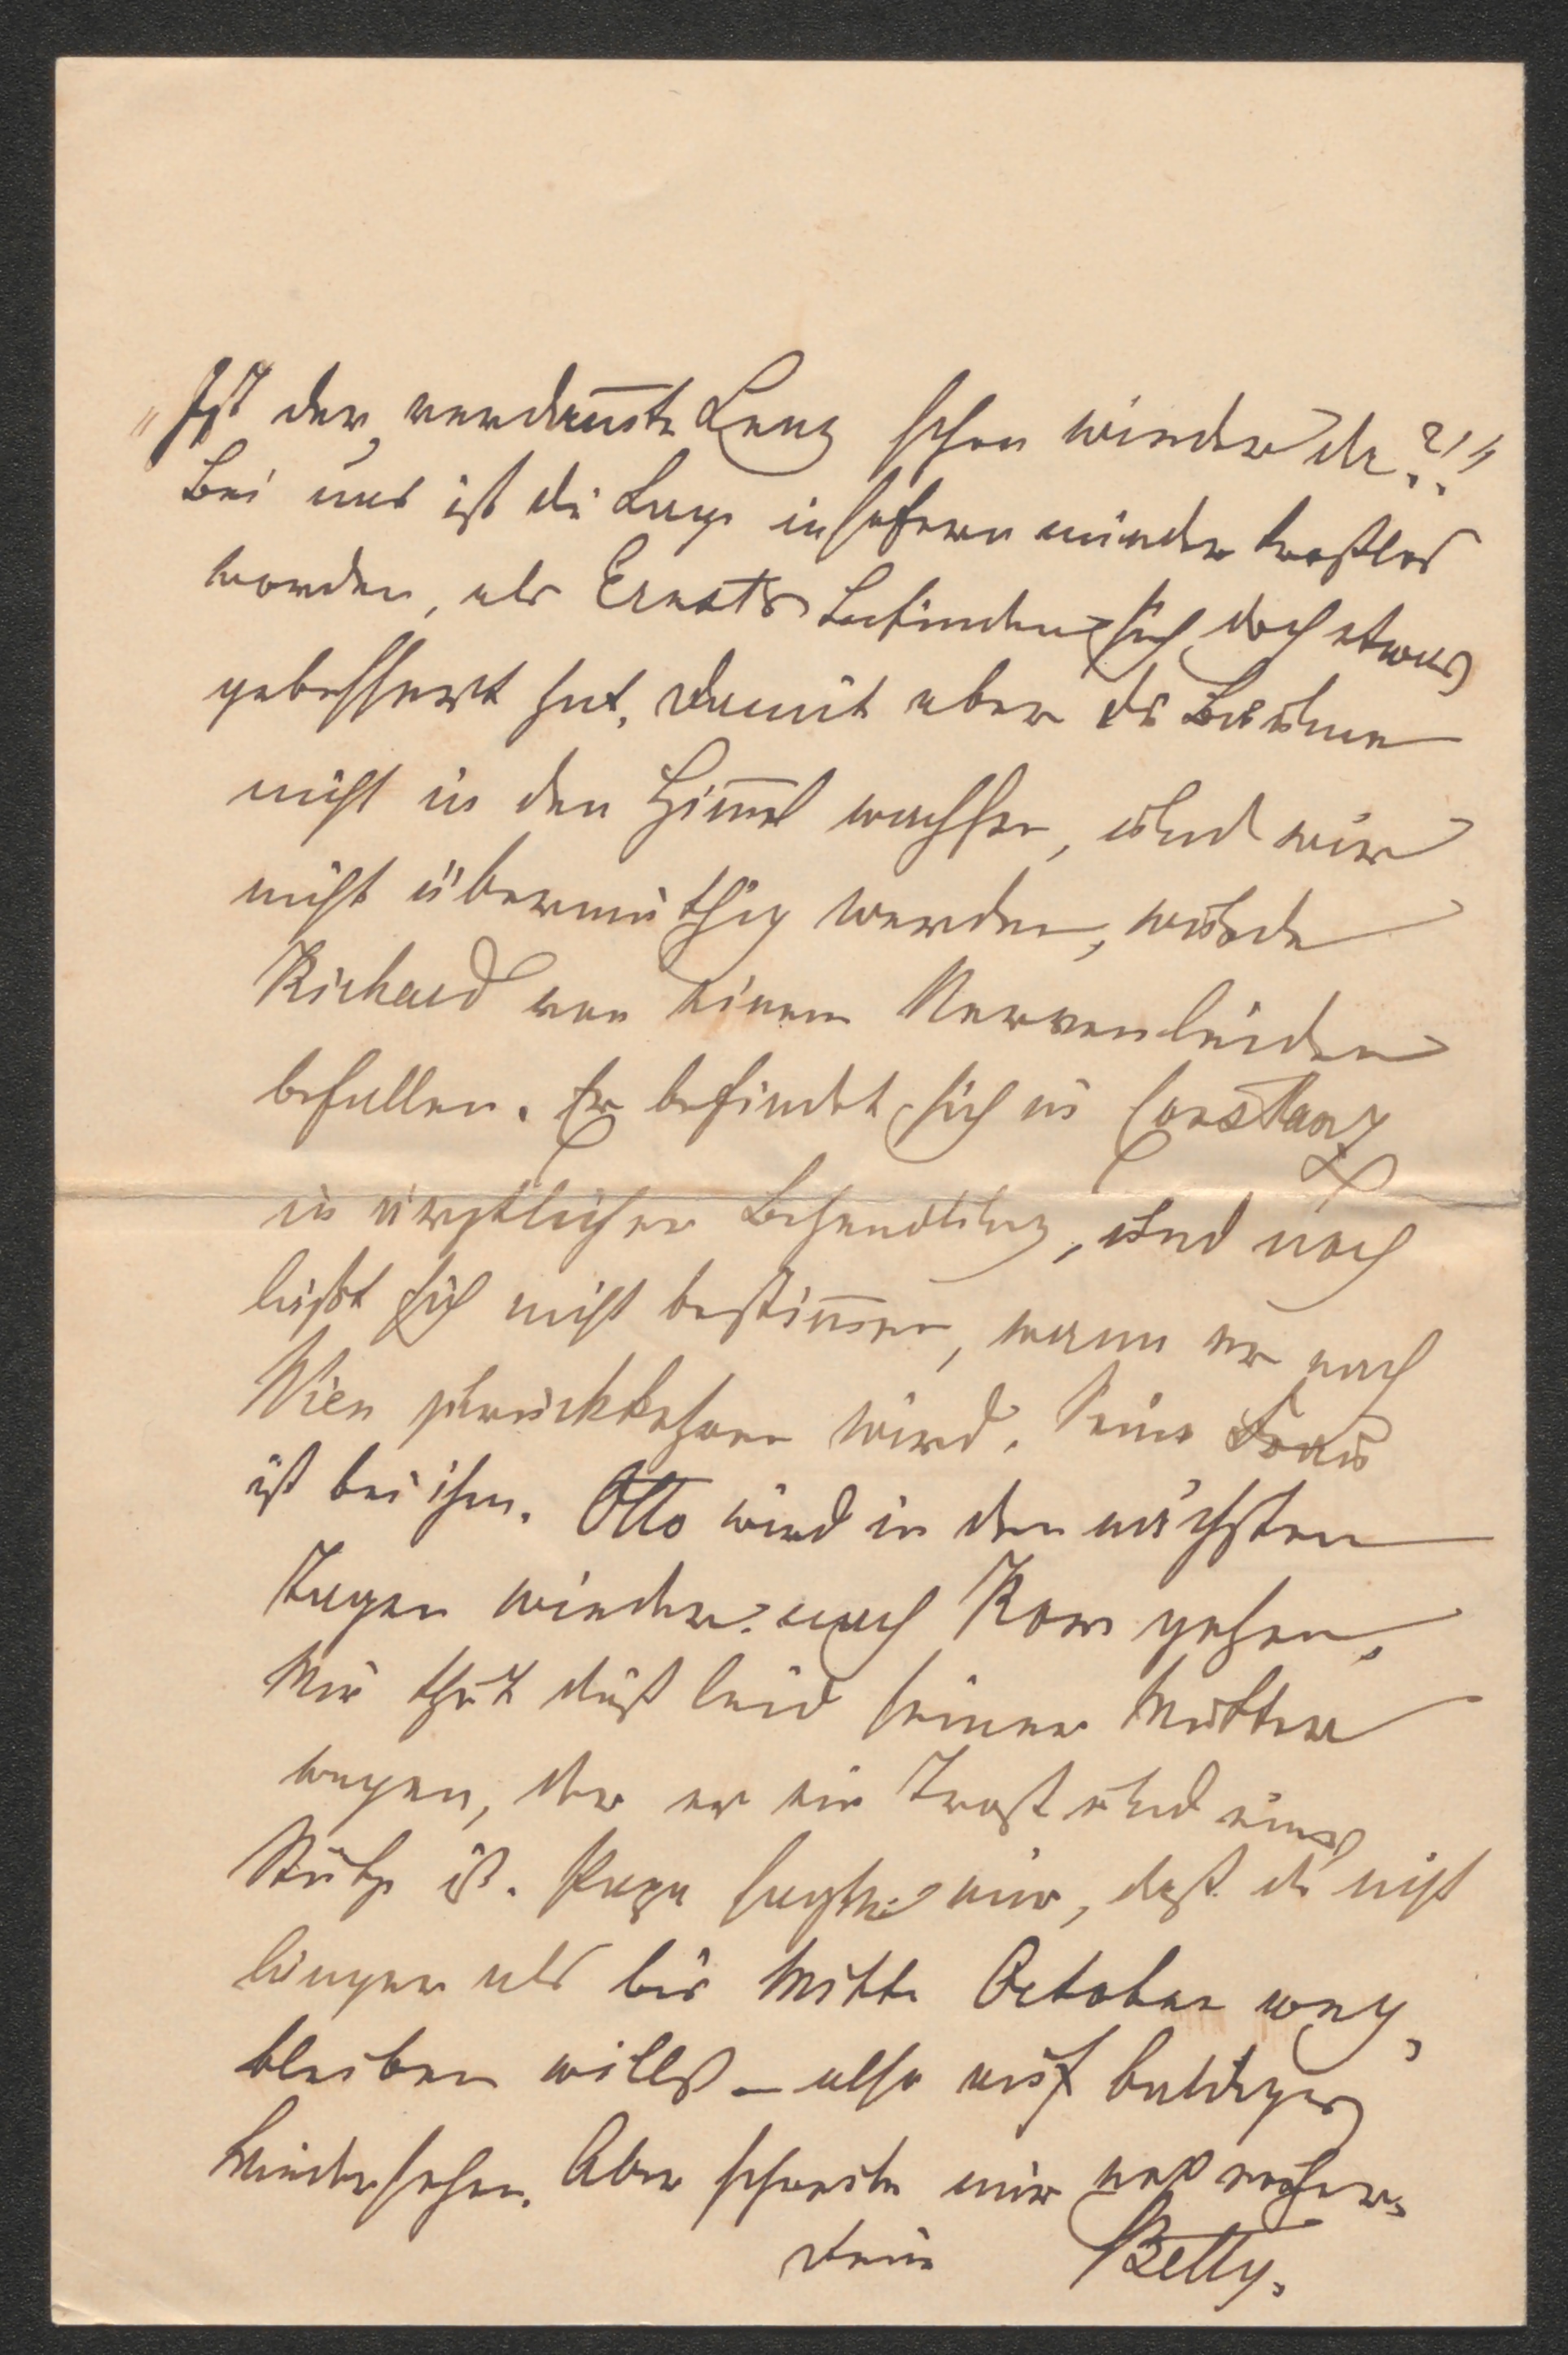 "Ist der verdam̅te Lenz schon wieder da?!"
Bei uns ist die Lage insofern minder trostlos
worden, als Ernst's Befinden sich doch etwas
gebessert hat. Damit aber die Bäume
nicht in den Him̅el wachsen, und wir
nicht übermüthig werden, wurde
Richard von einem Nervenleiden
befallen. Er befindet sich in Constanz
in ärztlicher Behandlung, und noch
läßt sich nicht bestim̅en, wann er nach
Wien zurückkehren wird. Seine Frau
ist bei ihm. Otto wird in den nächsten
Tagen wieder nach Rom gehen.
Mir thut dieß leid seiner Mutter
wegen, der er ein Trost und eine
Stütze ist. Papa sagte mir, daß du nicht
länger als bis Mitte October weg
bleiben willst – also auf baldiges
Wiedersehen. Aber schreibe mir noch vorher.
Deine Betty.